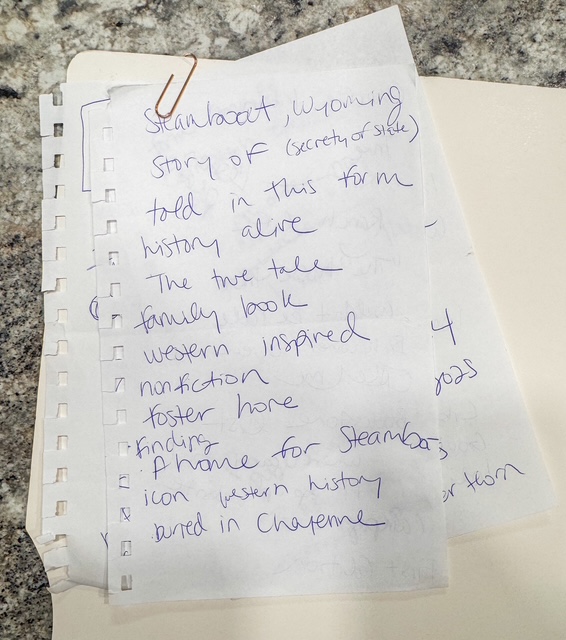 Steamboat, Wyoming
Story of (secrety of state)
told in this form
history alive
The true tale
family book
western inspired
nonfiction
foster home
finding
A home for Steamboa
icon western history
buried in Chayenne
4
2025